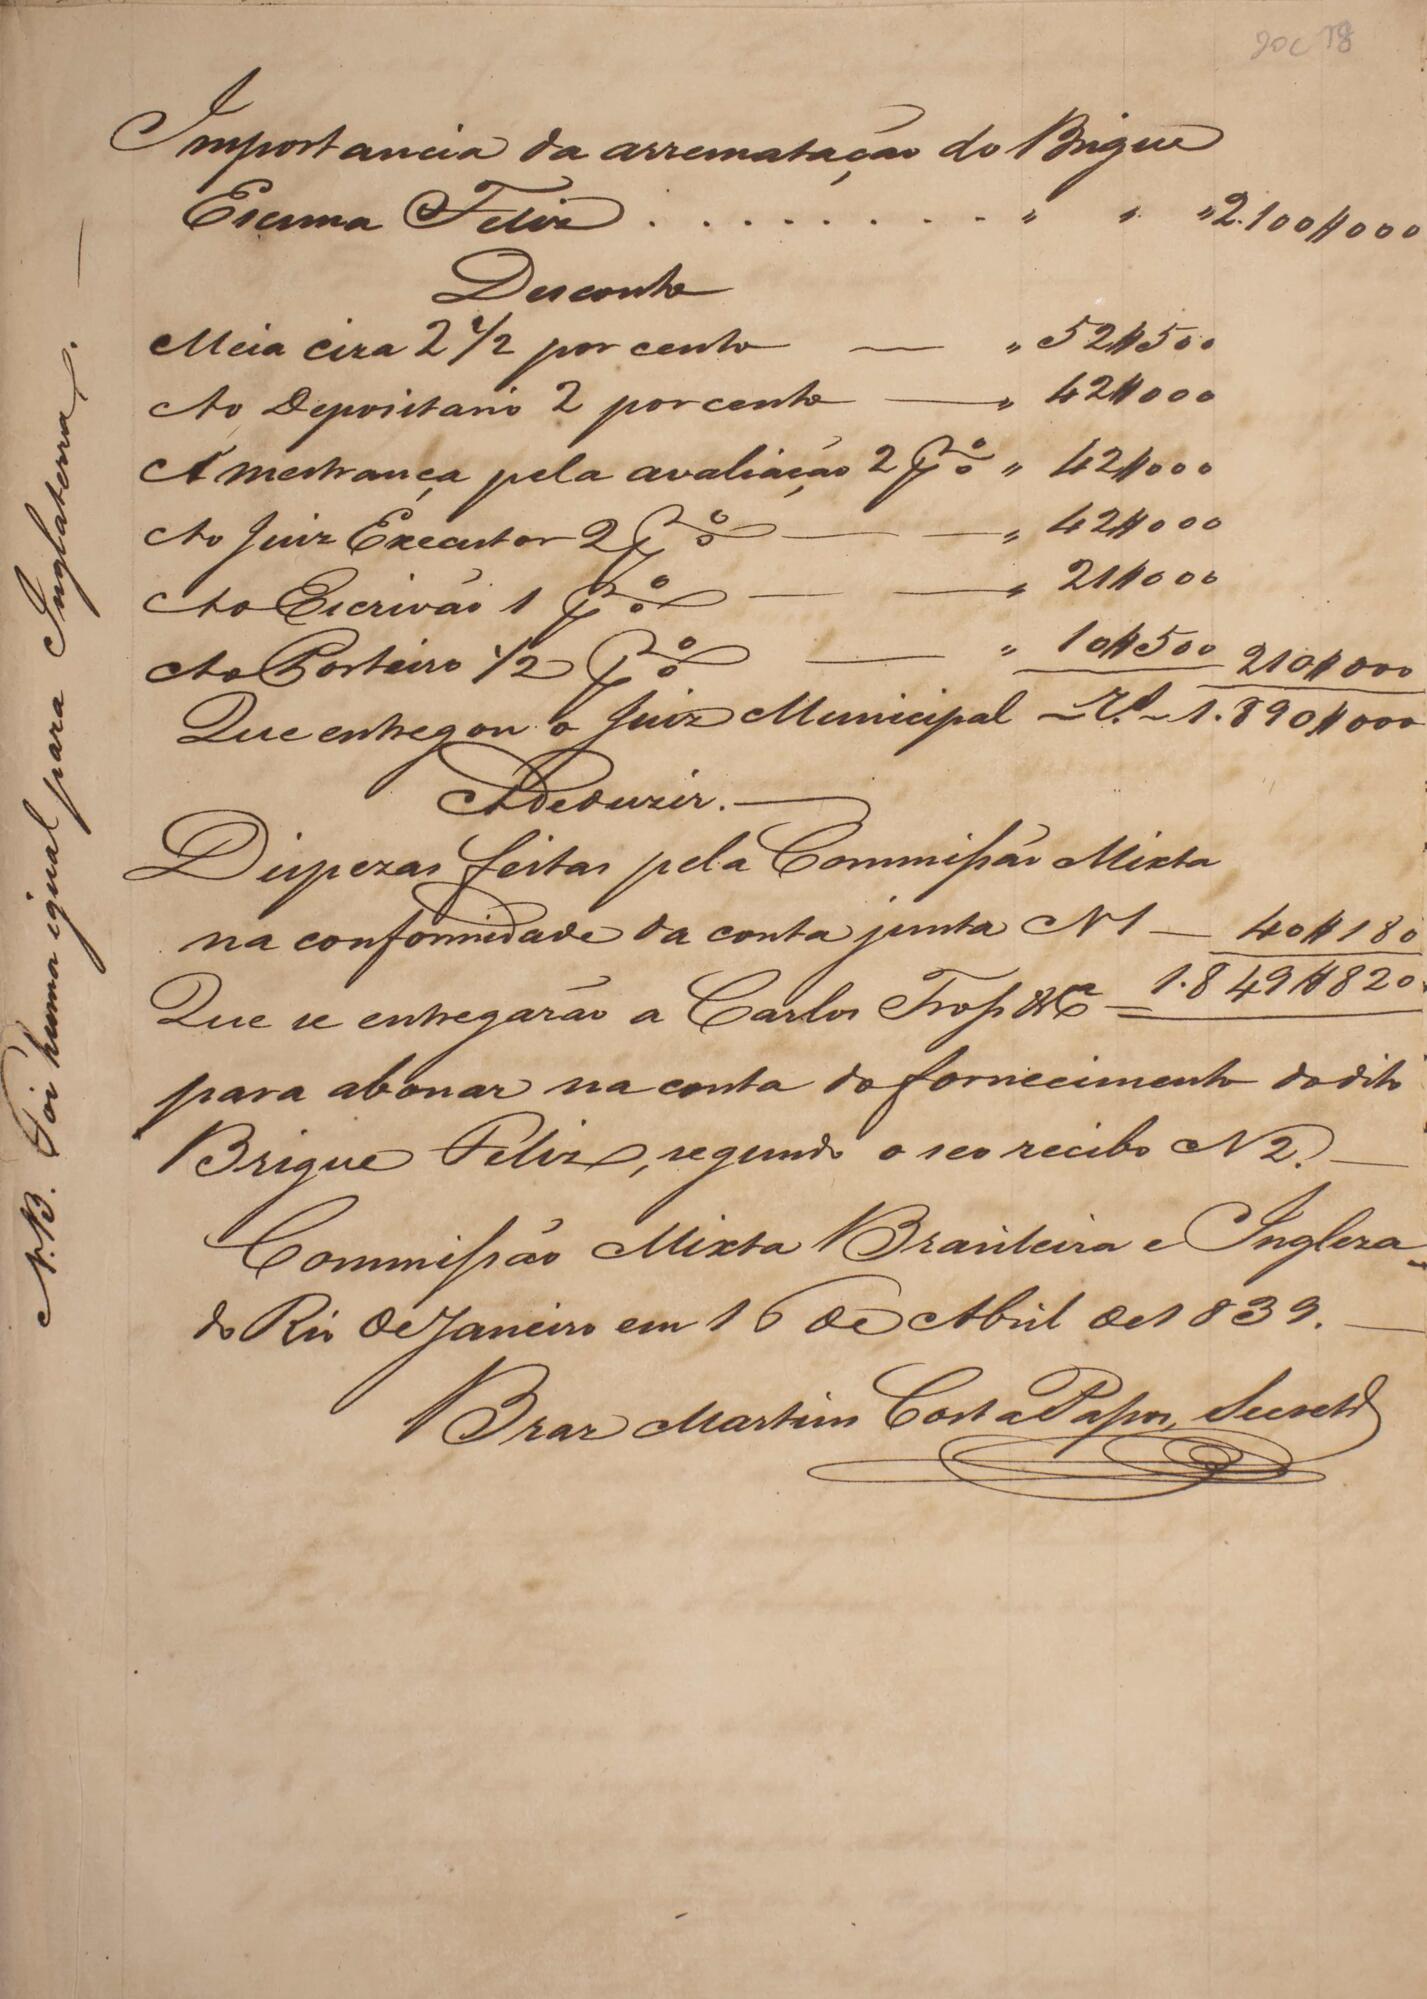 doc 18
Importancia da arrematação do Brigue
Escuna Feliz . . . . . . . . . . " " "2.100$000
Desconto
Meia ciza 2 1/2 por cento — " 52$500
Ao Depositario 2 por cento — " 42$000
A mestrança pela avaliação 2 p% " 42$000
Ao Juiz Executor 2 p% — — " 42$000
Ao Escrivão 1 p% — — " 21$000
Ao Porteiro 1/2 p% — " 10$500 210$000
Que entregou o Juiz Municipal — R.s — 1.890$000
A deduzir. —
Dispezas feitas pela Commissão Mixta
na conformidade da conta junta N 1 — 40$180
Que se entregarão a Carlos &Cª = 1.849$820
para abonar na conta do fornecimento do dito
Brigue Feliz, segundo o seo recibo N 2. —
Commissão Mixta Brasileira e Ingleza
do Rio de Janeiro em 16 de Abril de 1839. —
Braz Martins Costa Passos, Secret.º
N.B. Foi huma igual para Inglaterra. —